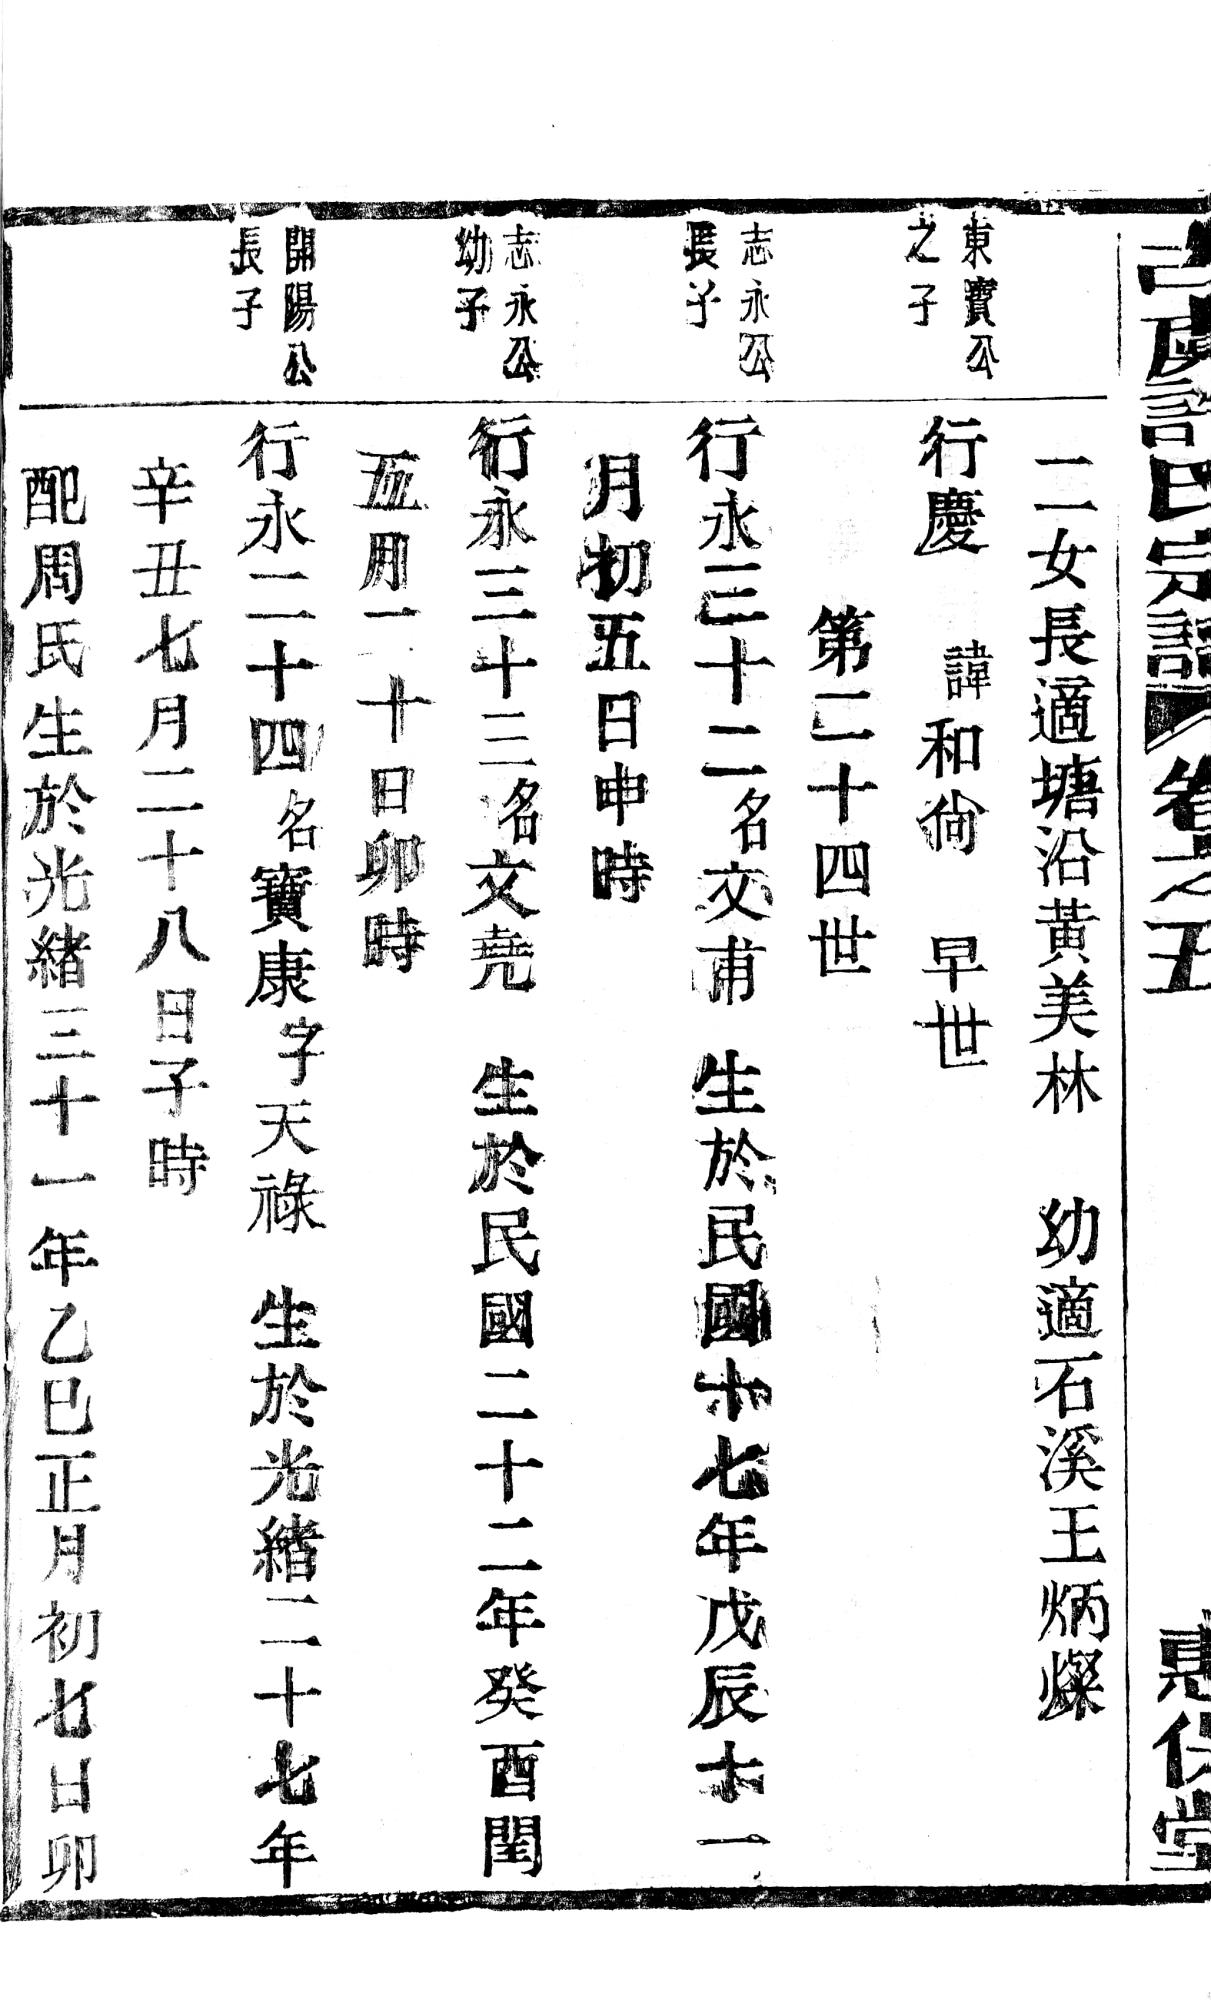 許氏宗譜 卷之五 惠保堂
二女長適塘沿黃美林 幼適石溪王炳燦
東寶公
之子
行慶 諱和尙 早世
第二十四世
志永公
長子
行永三十二名文甫 生於民國十七年戊辰十一
月初五日申時
志永公
幼子
行永三十三名文堯 生於民國二十二年癸酉閏
五月一十日卯時
開陽公
長子
行永二十四名寶康字天祿 生於光緒二十七年
辛丑七月二十八日子時
配周氏生於光緒三十一年乙巳正月初七日卯